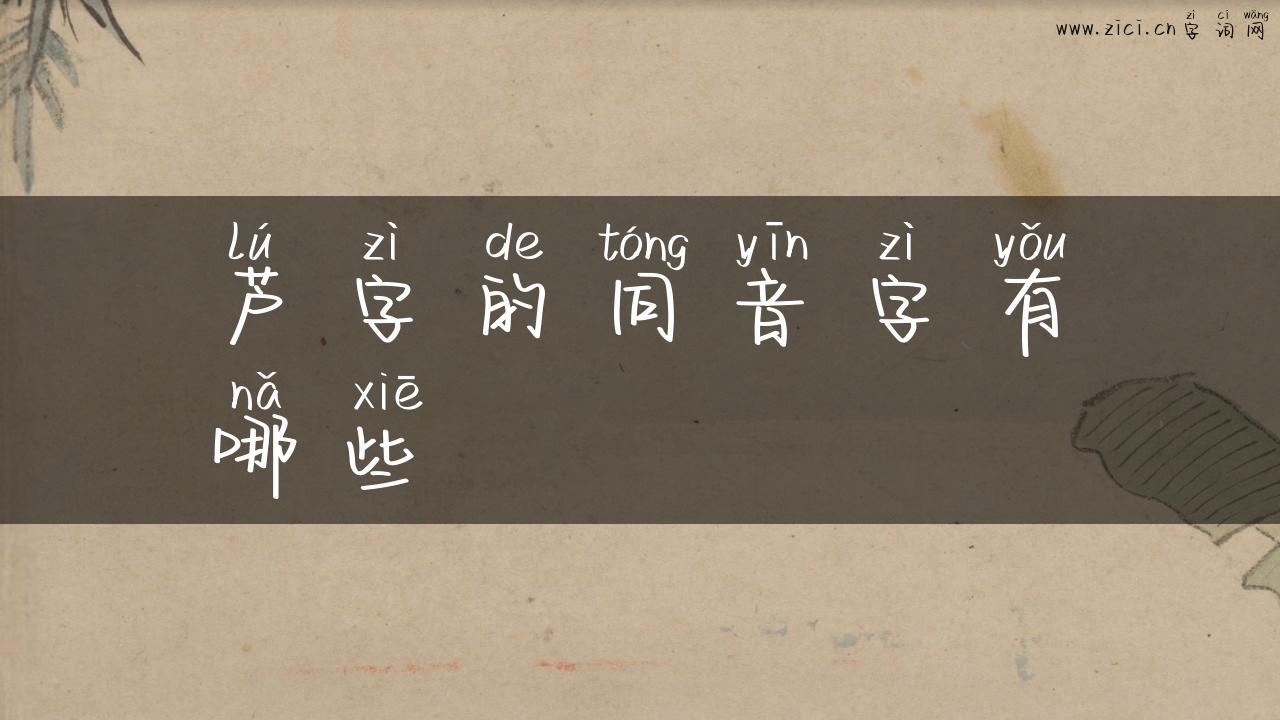 zì cí wǎng
www.zici.cn 字词网
lú zì de tóng yīn zì yǒu
芦字的同音字有
nǎ xiē
哪些